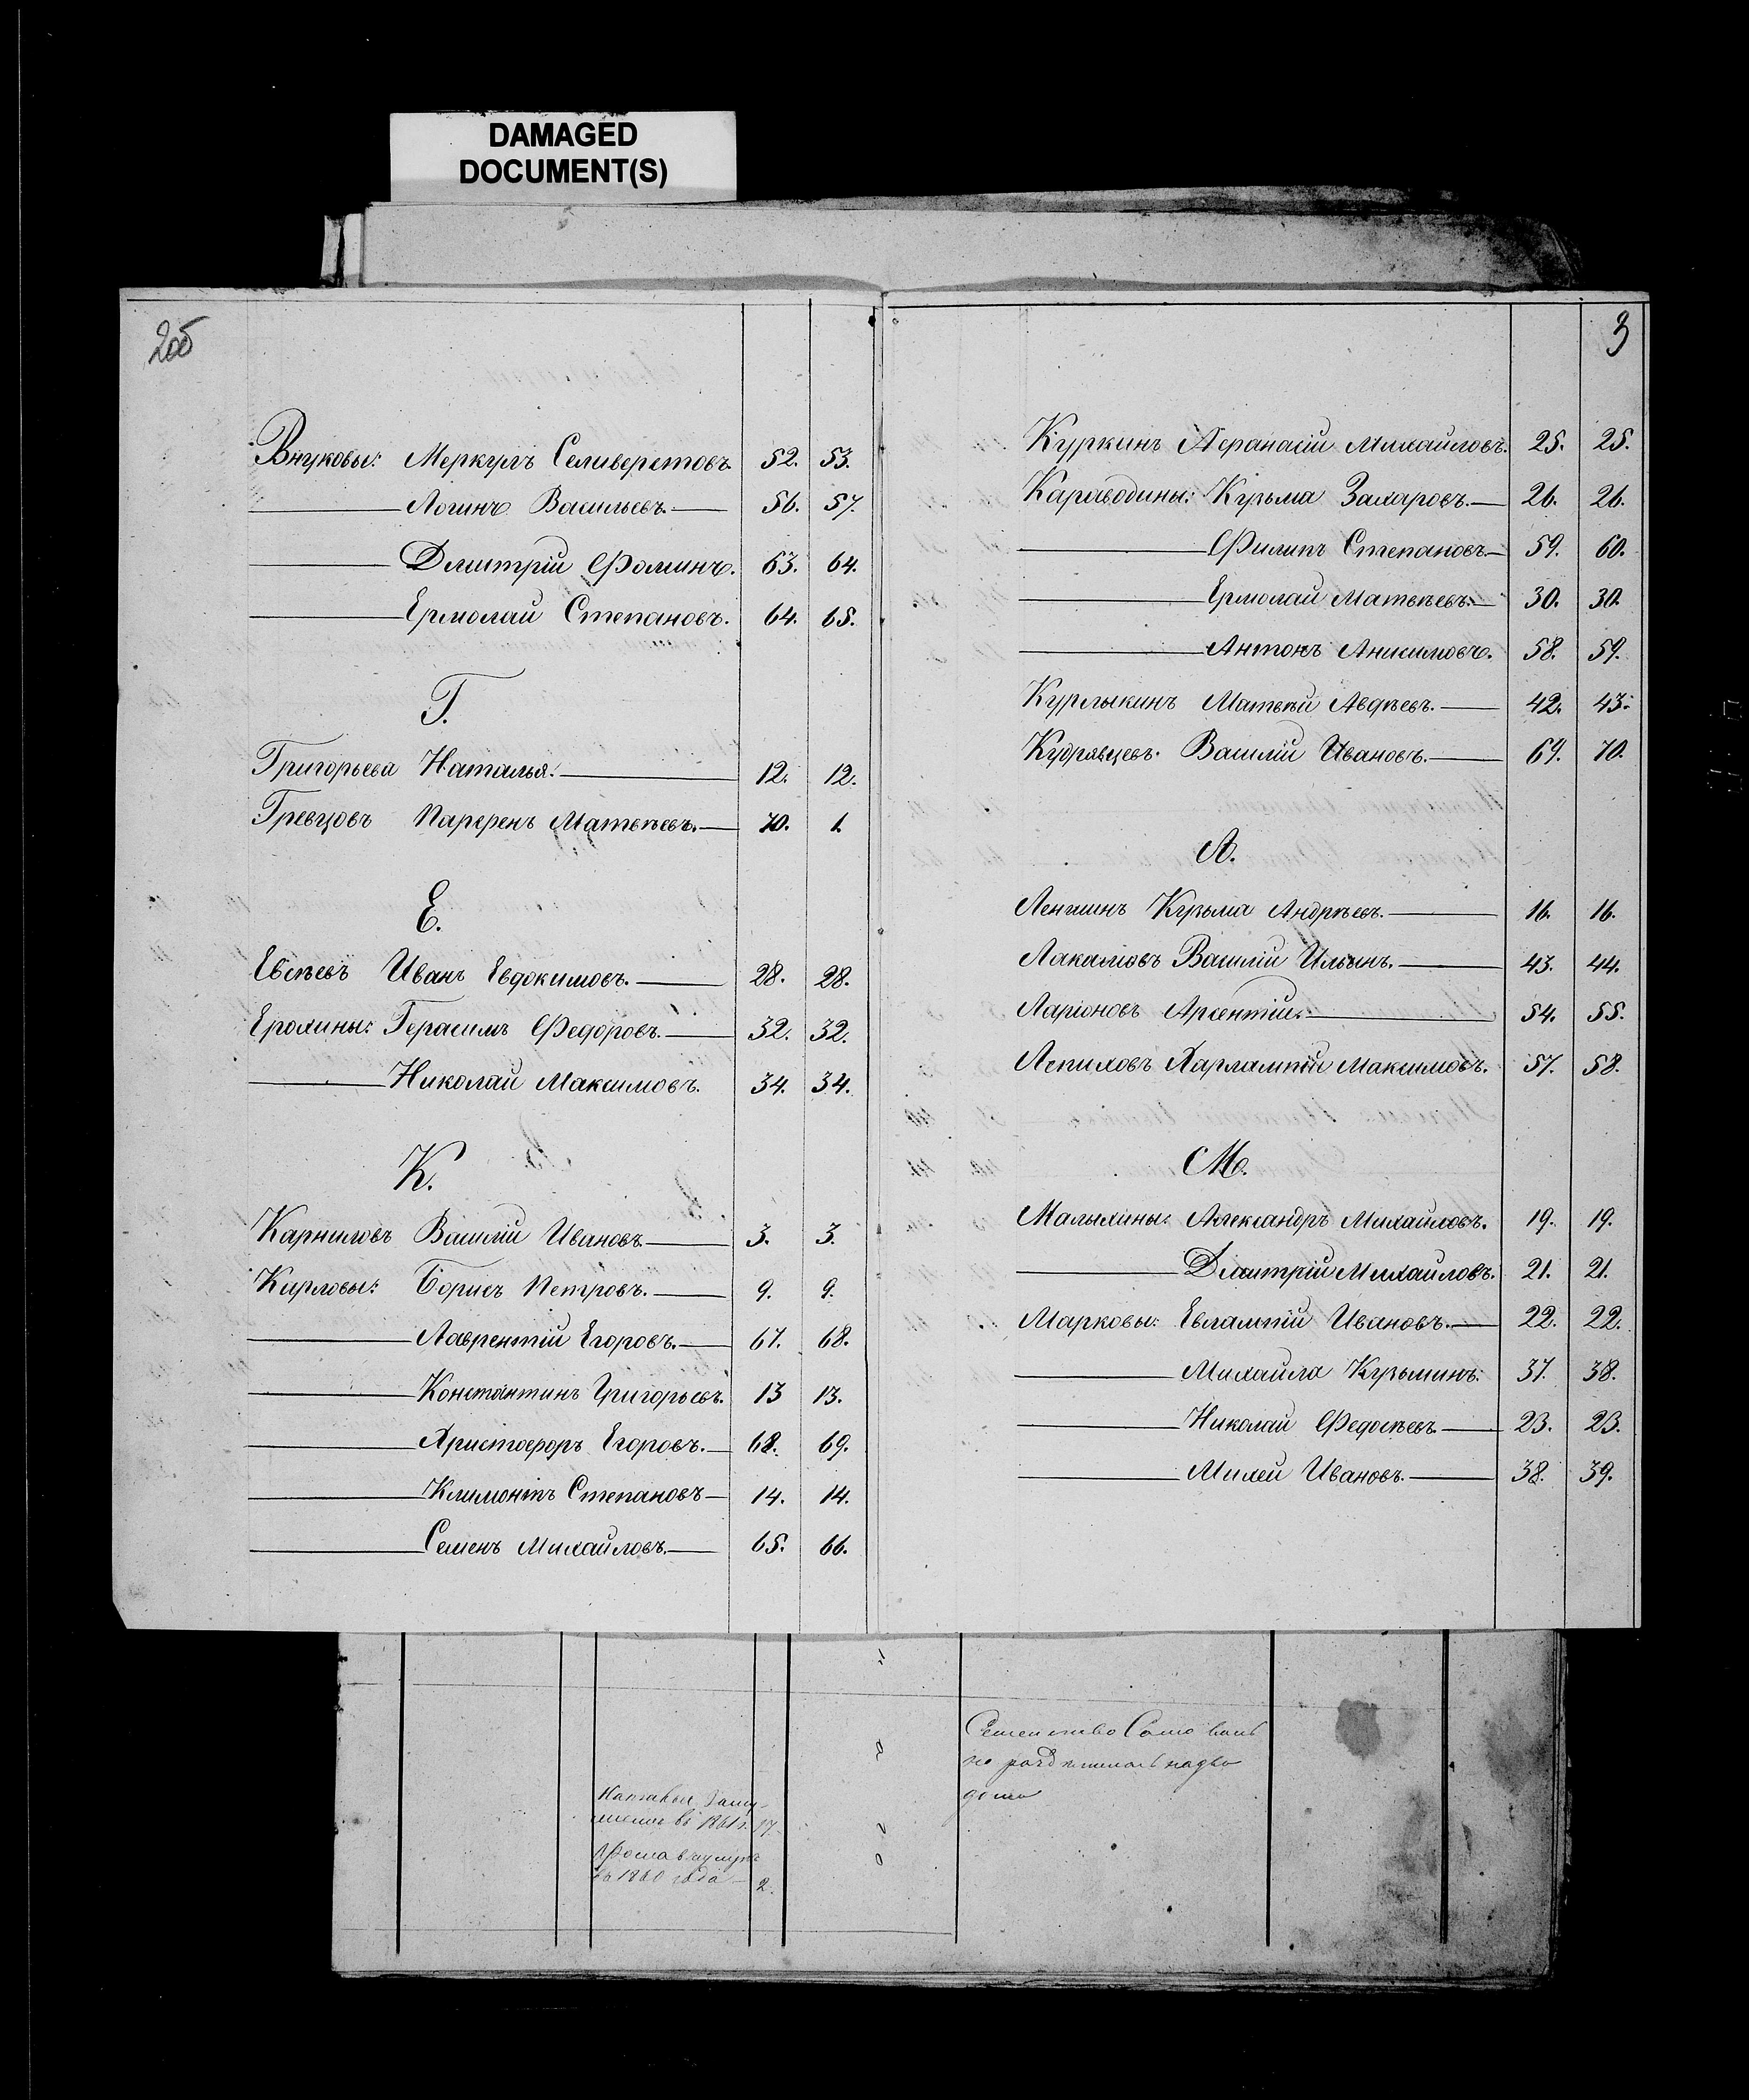 DAMAGED
DOCUMENT(S)
2об
Внуковы: Меркулъ Селиверстовъ. 52. 53.
Логинъ Васильевъ. 56. 57.
Дмитрій Фоминъ. 63. 64.
Ермолай Степановъ. 64. 65.
Г.
Григорьева Наталья. 12. 12.
Гревцовъ Парфенъ Матвѣевъ. 70. 1.
Е.
Евсѣевъ Иванъ Евдокимовъ. 28. 28.
Ерохины: Герасимъ Федоровъ. 32. 32.
Николай Максимовъ. 34. 34.
К.
Карниловъ Василій Ивановъ. 3. 3.
Кирловы: Борисъ Петровъ. 9. 9.
Лаврентій Егоровъ. 67. 68.
Константинъ Григорьевъ. 13 13.
Христофоръ Егоровъ. 68. 69.
Климонтъ Степановъ 14. 14.
Семенъ Михайловъ. 65. 66.
3
Куркинъ Афанасій Михайловъ. 25. 25.
Караводины: Кузьма Захаровъ. 26. 26.
Филипъ Степановъ 59. 60.
Ермолай Матвѣевъ. 30. 30.
Антонъ Анисимовъ. 58. 59.
Курлыкинъ Матвѣй Авдѣевъ. 42. 43.
Кудрявцевъ Василій Ивановъ. 69. 70.
Л.
Леншинъ Кузьма Андрѣевъ. 16. 16.
Лакамовъ Василій Ильинъ. 43. 44.
Ларіоновъ Арсентій. 54. 55.
Лепиховъ Харлампій Максимовъ. 57. 58.
М.
Малыхины: Александръ Михайловъ. 19. 19.
Дмитрій Михайловъ. 21. 21.
Марковы: Евлампій Ивановъ. 22. 22.
Михайла Кузьминъ. 37. 38.
Николай Федосѣевъ 23. 23.
Михей Ивановъ. 38. 39.
Семейство
на
дома
Наталья
въ 1861 г. 17.
въ 1860 года 2.